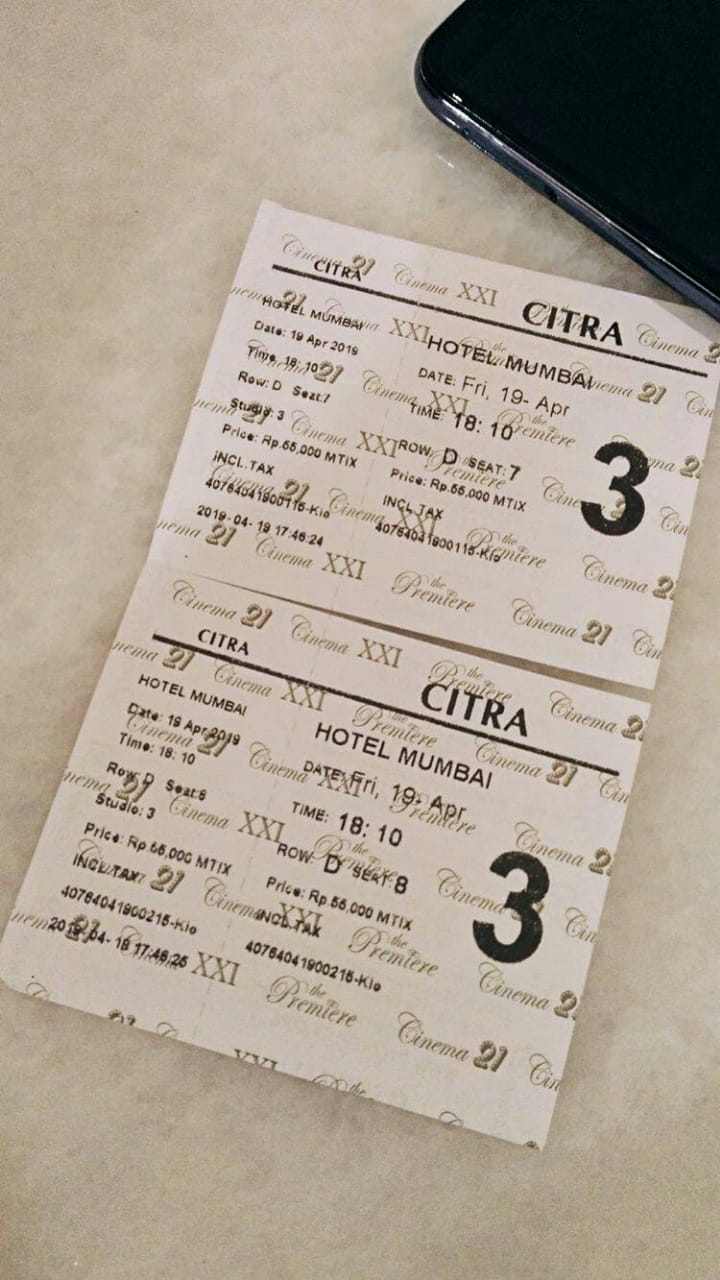 CITRA
HOTEL MUMBAI
Date: 19 Apr 2019
Time: 18: 10
Row: D Seat:7
Studio: 3
Price: Rp.55,000 MTIX
INCL.TAX
40764041900115-Kio
2019-04-19 17:46:24
CITRA
HOTEL MUMBAI
DATE: Fri, 19- Apr
TIME: 18: 10
ROW: D SEAT: 7
Price: Rp.55,000 MTIX
INCL.TAX
40764041900115-Kio
3
CITRA
HOTEL MUMBAI
Date: 19 Apr 2019
Time: 18: 10
Row: D Seat:8
Studio: 3
Price: Rp.55,000 MTIX
INCL.TAX
40764041900215-Kio
2019-04-19 17:46:25
CITRA
HOTEL MUMBAI
DATE: Fri, 19- Apr
TIME: 18: 10
ROW: D SEAT: 8
Price: Rp.55,000 MTIX
INCL.TAX
40764041900215-Kio
3
Cinema 21
Cinema XXI
the Premiere